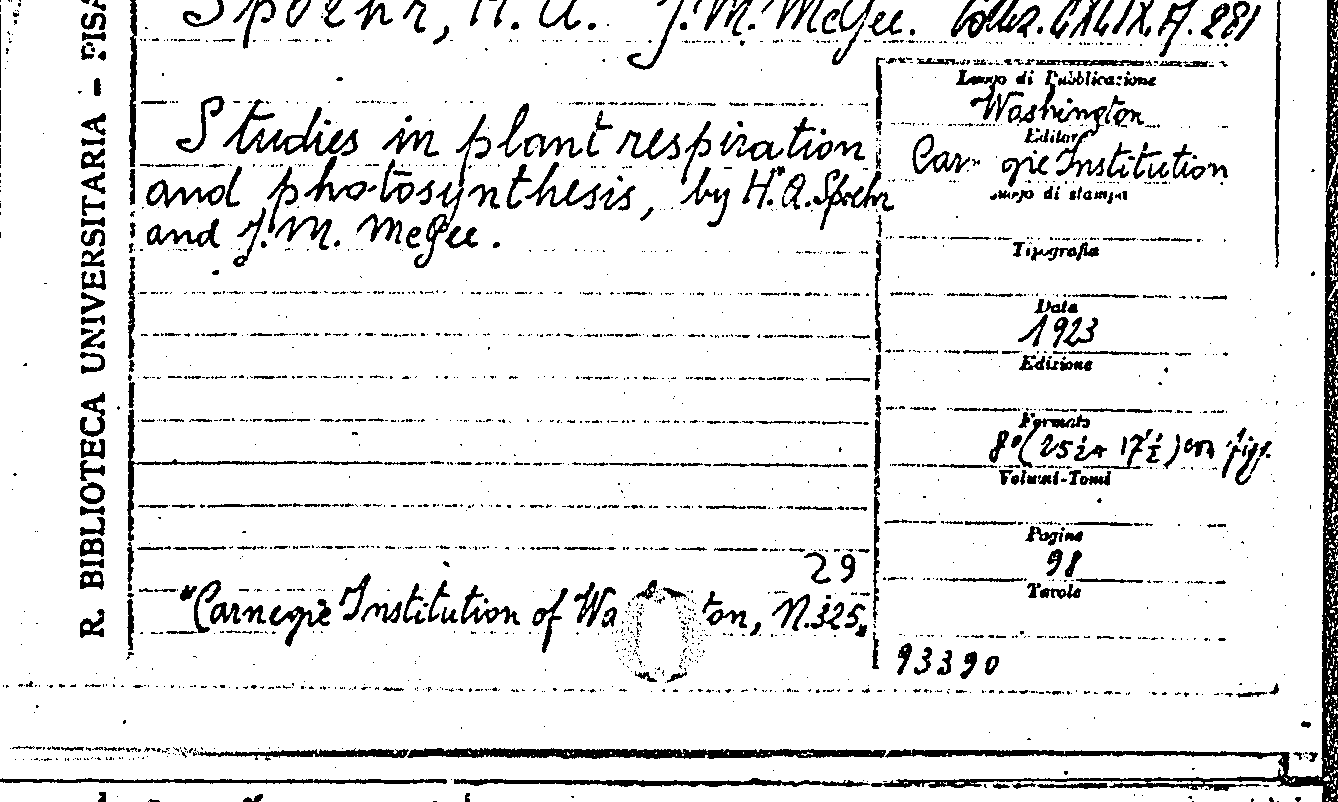 Spoehr, H. A. J. M. McGee. Collez. CXLIX. A. 281
R. BIBLIOTECA UNIVERSITARIA - PISA
Studies in plant respiration
and photosynthesis, by H. A. Spoehr
and J. M. McGee.
29
"Carnegie Institution of Wa ton, N. 325"
Luogo di Pubblicazione
Washington
Editore
Car gie Institution
Luogo di stampa
Tipografia
Data
1923
Edizione
Formato
8° (25½ x 17½) con figg.
Volumi-Tomi
Pagine
98
Tavole
93390